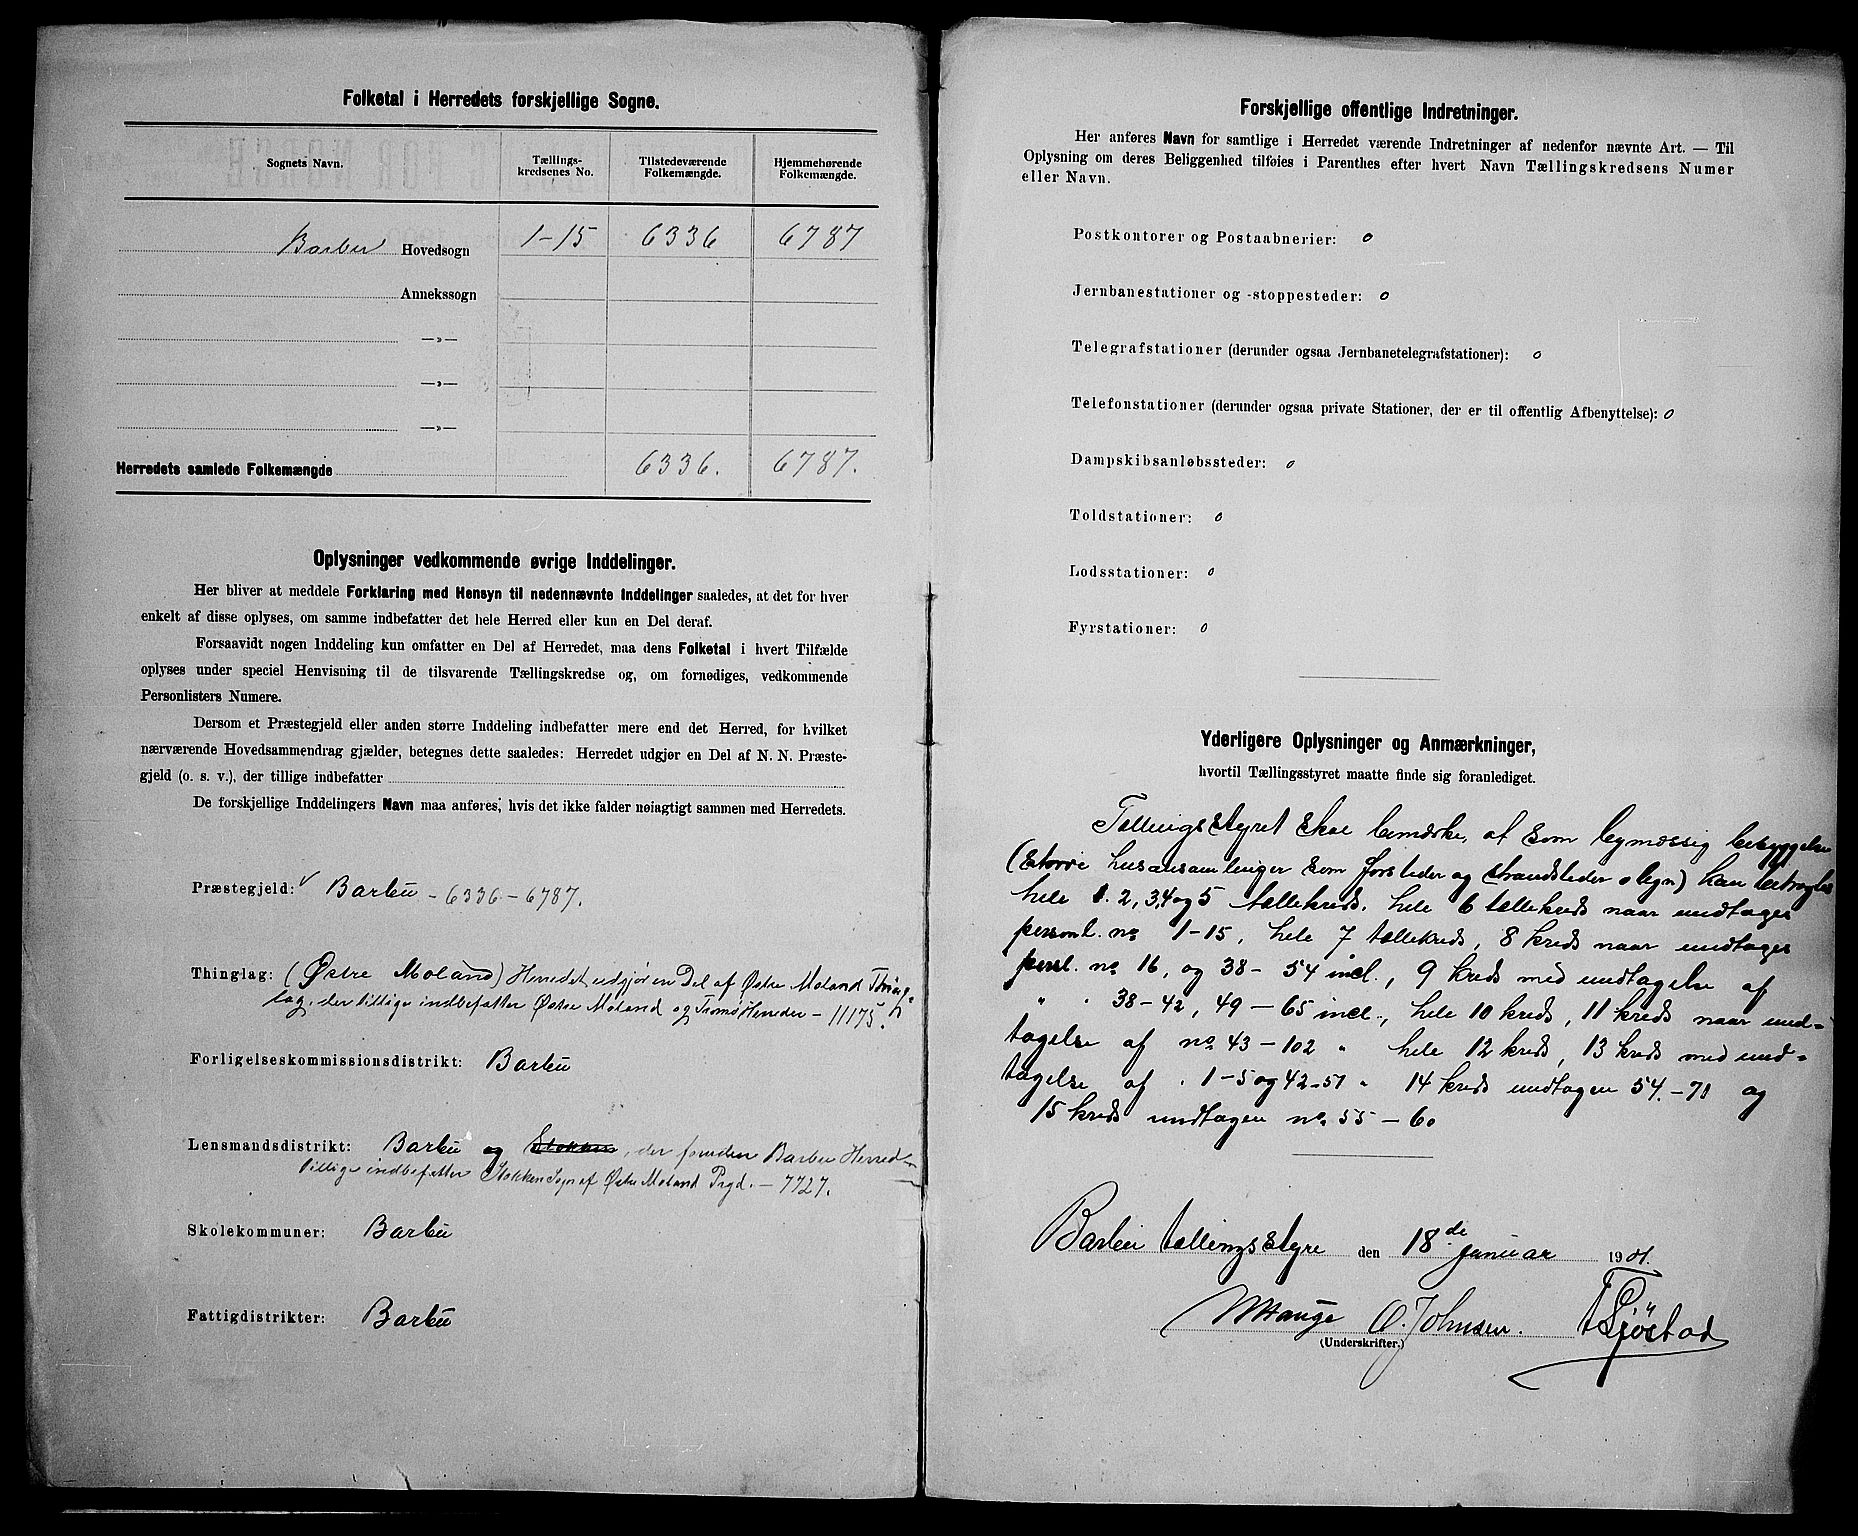 Folketal i Herredets forskjellige Sogne.
Sognets Navn.
Tællings-
kredsenes No.
Tilstedeværende
Folkemængde.
Hjemmehørende
Folkemængde.
Barbu Hovedsogn 1-15 6336 6787
Annekssogn
—»—
—»—
—»—
Herredets samlede Folkemængde 6336. 6787.
Oplysninger vedkommende øvrige Inddelinger.
Her bliver at meddele Forklaring med Hensyn til nedennævnte Inddelinger saaledes, at det for hver
enkelt af disse oplyses, om samme indbefatter det hele Herred eller kun en Del deraf.
Forsaavidt nogen Inddeling kun omfatter en Del af Herredet, maa dens Folketal i hvert Tilfælde
oplyses under speciel Henvisning til de tilsvarende Tællingskredse og, om fornødiges, vedkommende
Personlisters Numere.
Dersom et Præstegjeld eller anden større Inddeling indbefatter mere end det Herred, for hvilket
nærværende Hovedsammendrag gjælder, betegnes dette saaledes: Herredet udgjør en Del af N. N. Præste-
gjeld (o. s. v.), der tillige indbefatter
De forskjellige Inddelingers Navn maa anføres, hvis det ikke falder nøiagtigt sammen med Herredets.
Præstegjeld: Barbu - 6336 - 6787.
Thinglag: (Østre Moland) Herredet udgjør en Del af Østre Moland Thing-
lag, der tillige indbefatter Østre Moland og Tromø Herreder - 11175.
Forligelseskommissionsdistrikt: Barbu
Lensmandsdistrikt: Barbu og Stokken, der foruden Barbu Herred
tillige indbefatter Stokken Sogn af Østre Moland Prgd. - 7727.
Skolekommuner: Barbu
Fattigdistrikter: Barbu
Forskjellige offentlige Indretninger.
Her anføres Navn for samtlige i Herredet værende Indretninger af nedenfor nævnte Art. — Til
Oplysning om deres Beliggenhed tilføies i Parenthes efter hvert Navn Tællingskredsens Numer
eller Navn.
Postkontorer og Postaabnerier: 0
Jernbanestationer og -stoppesteder: 0
Telegrafstationer (derunder ogsaa Jernbanetelegrafstationer): 0
Telefonstationer (derunder ogsaa private Stationer, der er til offentlig Afbenyttelse): 0
Dampskibsanløbssteder: 0
Toldstationer: 0
Lodsstationer: 0
Fyrstationer: 0
Yderligere Oplysninger og Anmærkninger,
hvortil Tællingsstyret maatte finde sig foranlediget.
Tællingsstyret skal bemærke, at som bymæssig bebyggelse
(større husansamlinger som forsteder og strandsteder o lign) kan betragtes
hele 1. 2, 3,4 og 5 tællekreds. hele 6 tællekreds naar undtages
personl. no 1-15, hele 7 tællekreds, 8 kreds naar undtages
persl. no 16, og 38 - 54 incl., 9 kreds med undtagelse af
" " 38-42, 49 - 65 incl., hele 10 kreds, 11 kreds naar und-
tagelse af no. 43 - 102 " hele 12 kreds, 13 kreds med und-
tagelse af " 1-5 og 42-51 " 14 kreds undtagen 54.-71 og
15 kreds undtagen no. 55 - 60
Barbu tællingsstyre den 18de januar 1901.
Hauge O. Johnsen. Sjöstad
(Underskrifter.)